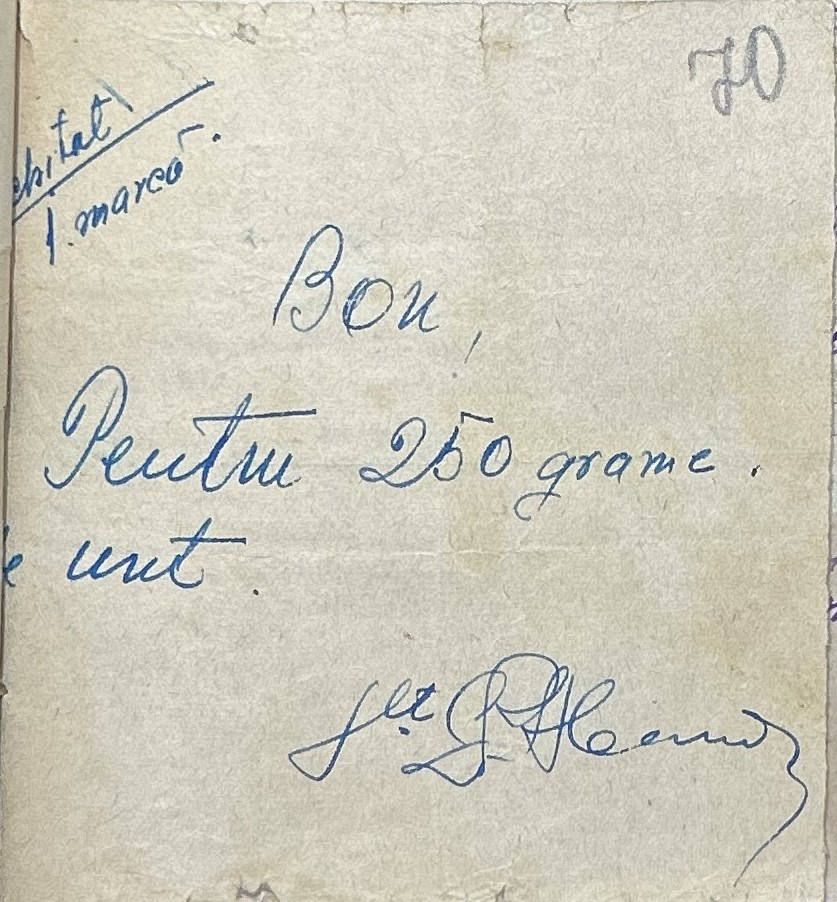 70
chitat
1. marcă.
Bon,
Pentru 250 grame.
e unt.
Slt